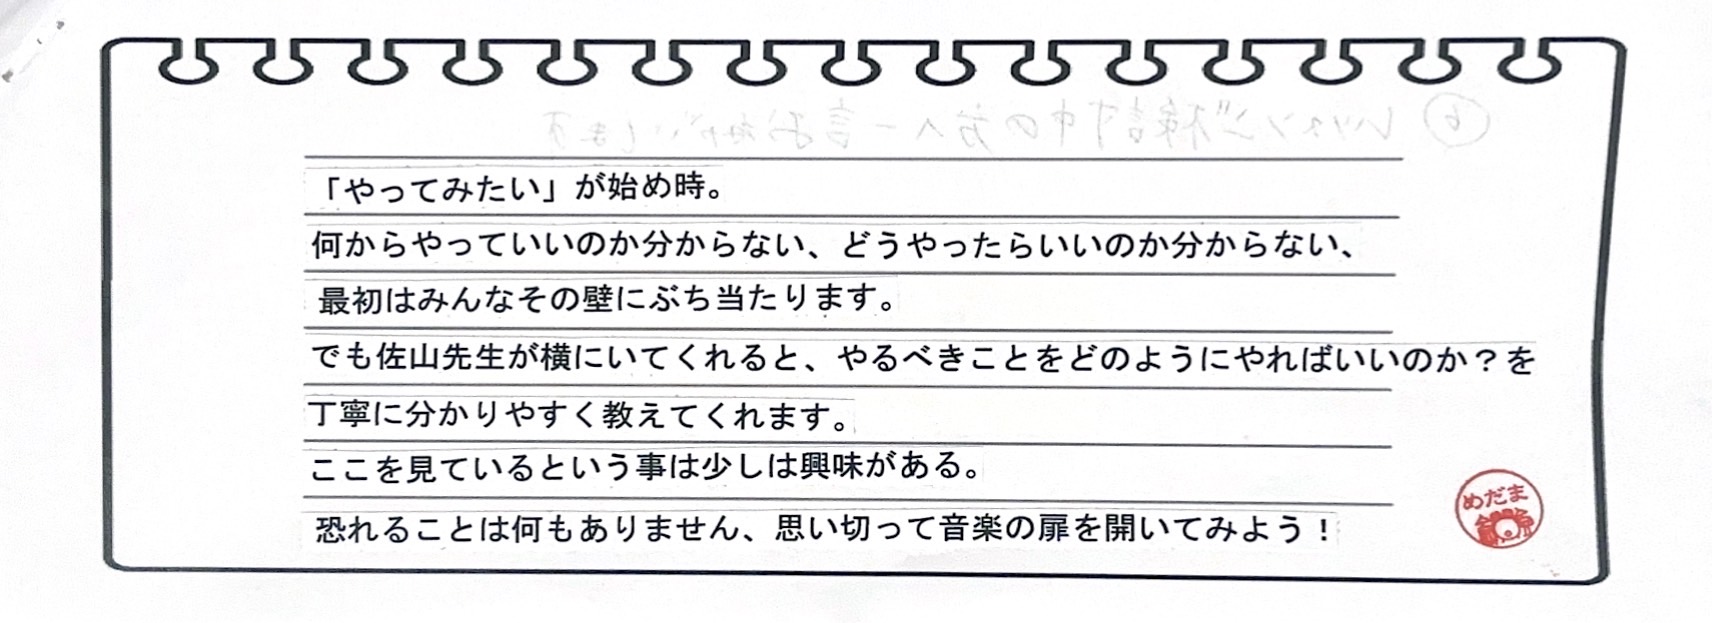 ⑥ レッスンご検討中の方へ一言おねがいします
「やってみたい」が始め時。
何からやっていいのか分からない、どうやったらいいのか分からない、
最初はみんなその壁にぶち当たります。
でも佐山先生が横にいてくれると、やるべきことをどのようにやればいいのか？を
丁寧に分かりやすく教えてくれます。
ここを見ているという事は少しは興味がある。
恐れることは何もありません、思い切って音楽の扉を開いてみよう！
めだま